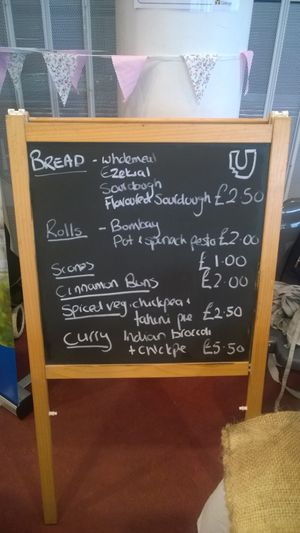 BREAD - wholemeal
Ezekial
Sourdough
Flavoured Sourdough £2.50
Rolls - Bombay
Pot & spinach pesto £2.00
Scones £1.00
Cinnamon Buns £2.00
Spiced veg. chickpea &
tahini pie £2.50
Curry Indian broccoli
+ chickpie £5.50